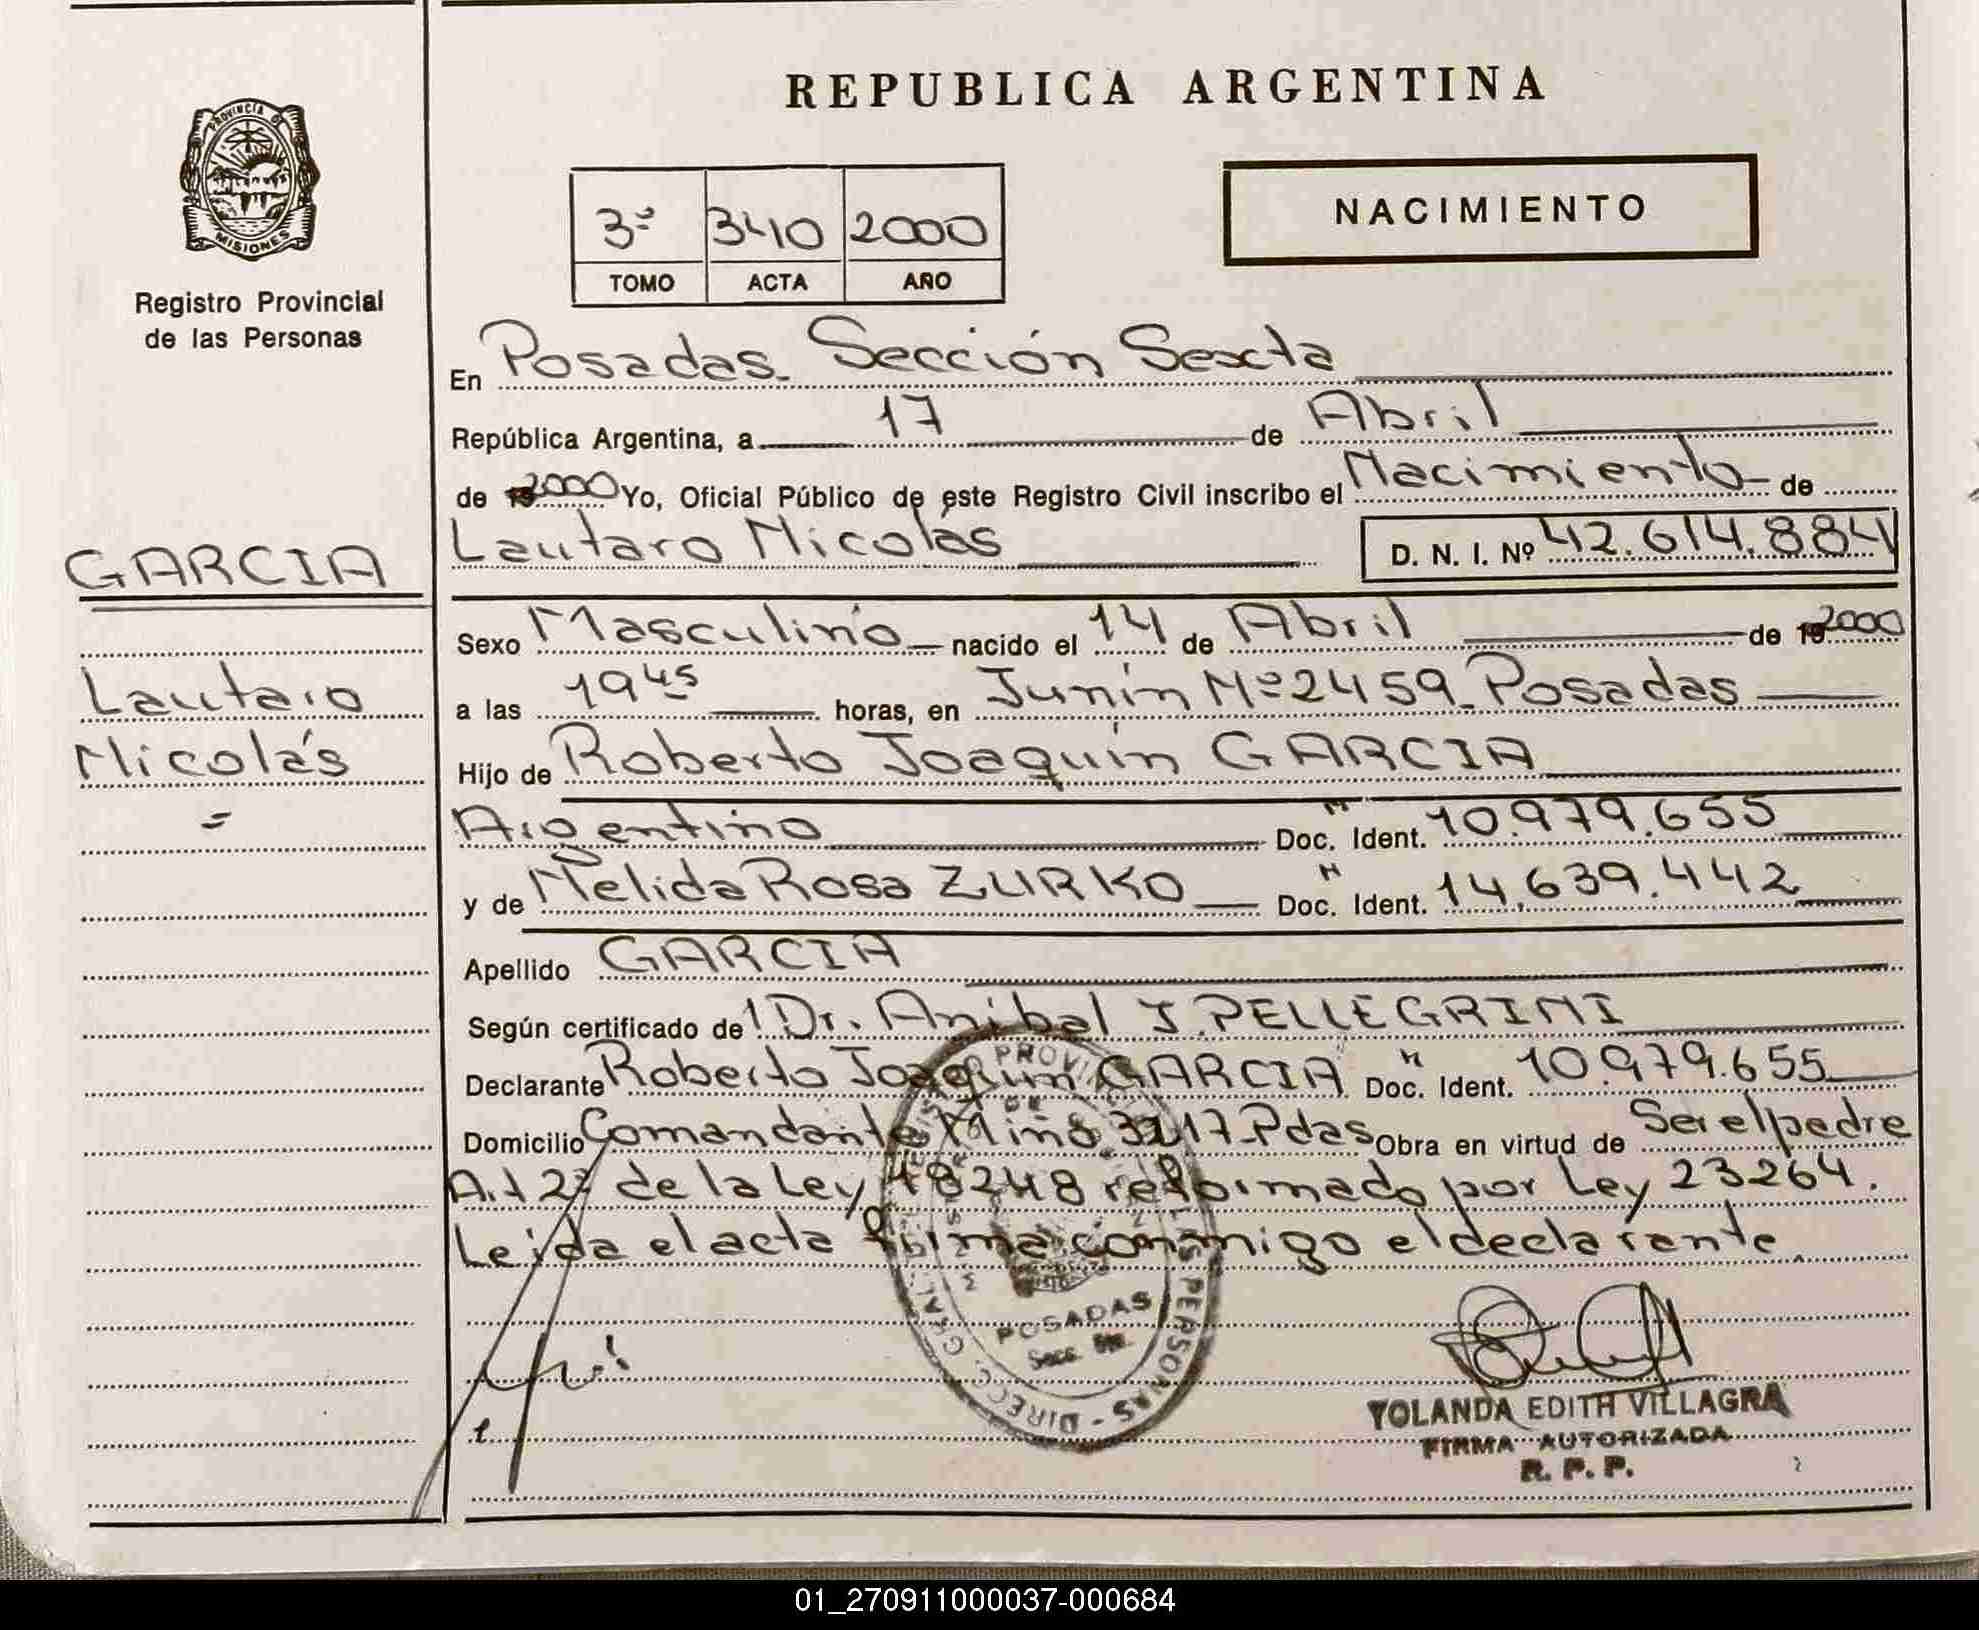 REPUBLICA ARGENTINA
PROVINCIA DE
MISIONES
Registro Provincial
de las Personas
3º 340 2000
TOMO ACTA AÑO
NACIMIENTO
En Posadas. Sección Sexta
República Argentina, a 17 de Abril
de 2000 Yo, Oficial Público de este Registro Civil inscribo el Nacimiento de
GARCIA
Lautaro Nicolás D. N. I. Nº 42.614.884
Sexo Masculino nacido el 14 de Abril de 2000
Lautaro
a las 19 45 horas, en Junín Nº 2459 Posadas
Nicolás
Hijo de Roberto Joaquín GARCIA
=
Argentino Doc. Ident. M 10.979.655
y de Nelida Rosa ZURKO Doc. Ident. N 14.639.442
Apellido GARCIA
Según certificado del Dr. Anibal J. PELLEGRINI
Declarante Roberto Joaquín GARCIA Doc. Ident. M 10.979.655
Domicilio Comandante Miño 3217-Pdas Obra en virtud de Ser el padre
Art 2º de la Ley 18248 reformado por Ley 23264.
Leida el acta firma conmigo el declarante.
PERSONAS - DIRECC. GRAL.
POSADAS
Secc.
YOLANDA EDITH VILLAGRA
FIRMA AUTORIZADA
R. P. P.
01_270911000037-000684